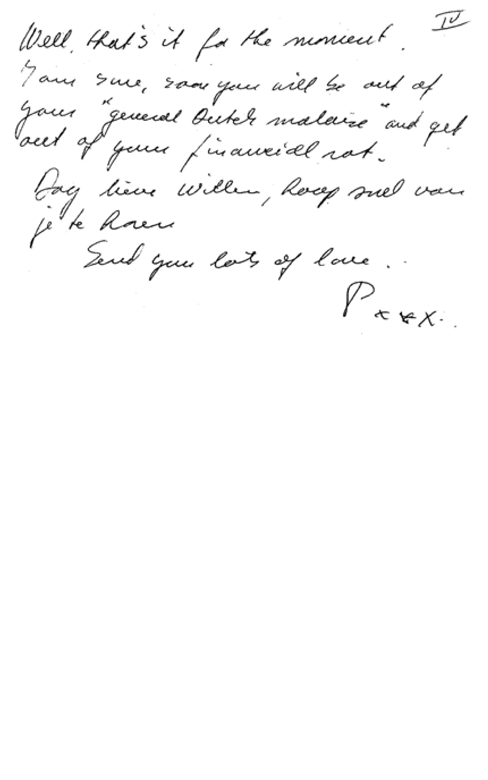 IV
Well, that's it for the moment.
I am sure, soon you will be out of
your "general Dutch malaise" and get
out of your financial rot.
Dag lieve Willem, hoop snel van
je te horen
Send you lots of love..
P xxx..